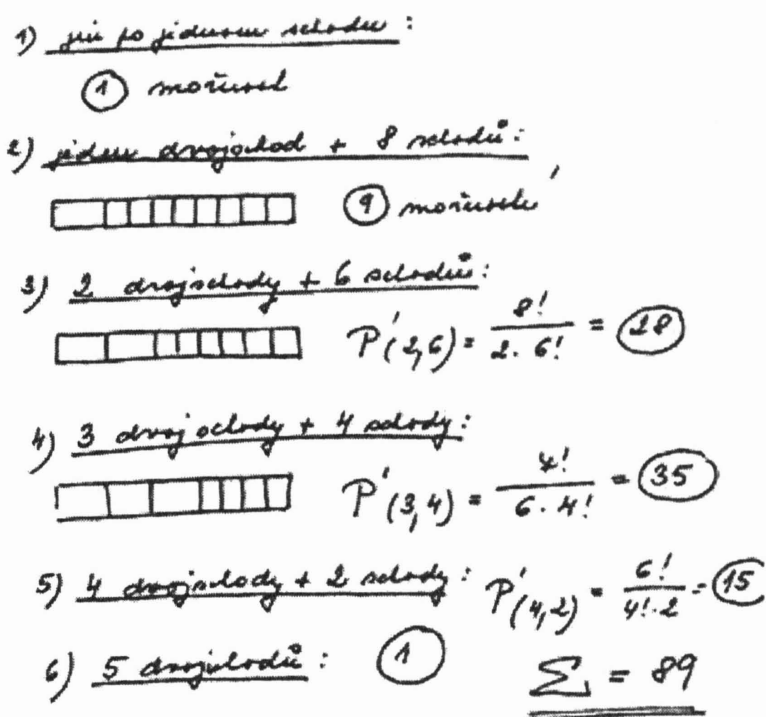 1) jen po jednom schodu :
① možnost
2) jeden dvojschod + 8 schodů:
⑨ možností
3) 2 dvojschody + 6 schodů:
P'(2,6) = 8! / 2. 6! = 28
4) 3 dvojschody + 4 schody:
P'(3,4) = 7! / 6. 4! = 35
5) 4 dvojschody + 2 schody: P'(4,2) = 6! / 4!.2 = 15
6) 5 dvojschodů : ① Σ = 89